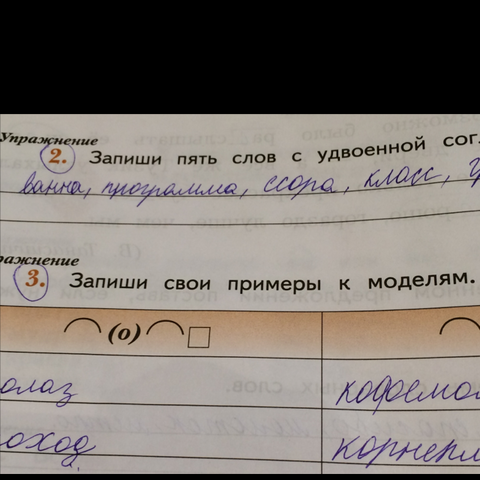 Упражнение
2. Запиши пять слов с удвоенной сог
ванна, программа, ссора, класс, г
ражнение
3. Запиши свои примеры к моделям.
(о)
олаз кофемол
оход корнепл